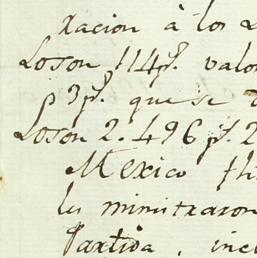 xacion à los
Loson 114 p.s valor
p 3 p.s que se
Loson 2.496 p.s 2
Mexico
ministraron
Partida, incl